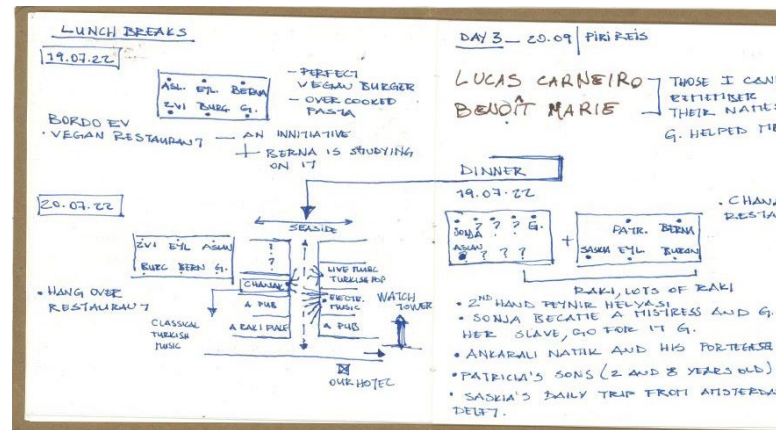 LUNCH BREAKS
19.07.22
ASL. EYL. BERNA
EVI BURG G.
- PERFECT
VEGAN BURGER
- OVER COOKED
PASTA
BORDO EV
• VEGAN RESTAURANT — AN INNITIATIVE
+ BERNA IS STUDYING
ON IT
20.07.22
EVI EYL ASLIN
BURC BERN G.
• HANG OVER
RESTAURANT
SEASIDE
? ?
CHANAK
A PUB
A RAKI PLACE
LIVE MUSIC
TURKISH POP
ELECTR.
MUSIC
A PUB
WATCH
TOWER
CLASSICAL
TURKISH
MUSIC
OUR HOTEL
DAY 3 — 20.09 | PIRI REIS
LUCAS CARNEIRO
BENOÎT MARIE
THOSE I CAN
REMEMBER
THEIR NAMES
G. HELPED ME
DINNER
19.07.22
? ? ? G.
SONJA
ASLIN ? ? ?
+
PATR. BERNA
SASKIA EYL BURCIN
• CHANA
RESTA
RAKI, LOTS OF RAKI
• 2ND HAND PEYNIR HELVASI
• SONJA BECAME A MISTRESS AND G.
HER SLAVE, GO FOR IT G.
• ANKARALI NAMIK AND HIS PORTEGESE
• PATRICIA'S SONS (2 AND 8 YEARS OLD)
• SASKIA'S DAILY TRIP FROM AMSTERDA
DELFT.